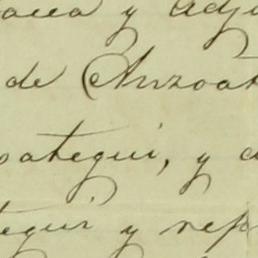 y adju
de Anzoat
oategui, y
tegui y rep